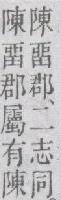 陳畱郡、二志同
陳畱郡屬有陳